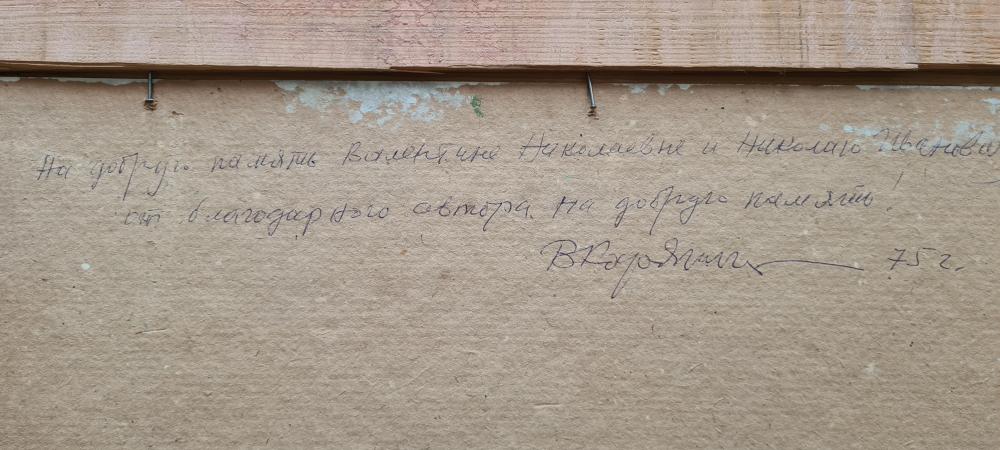 На добрую память Валентине Николаевне и Николаю Иванови
от благодарного автора на добрую память!
75 г.